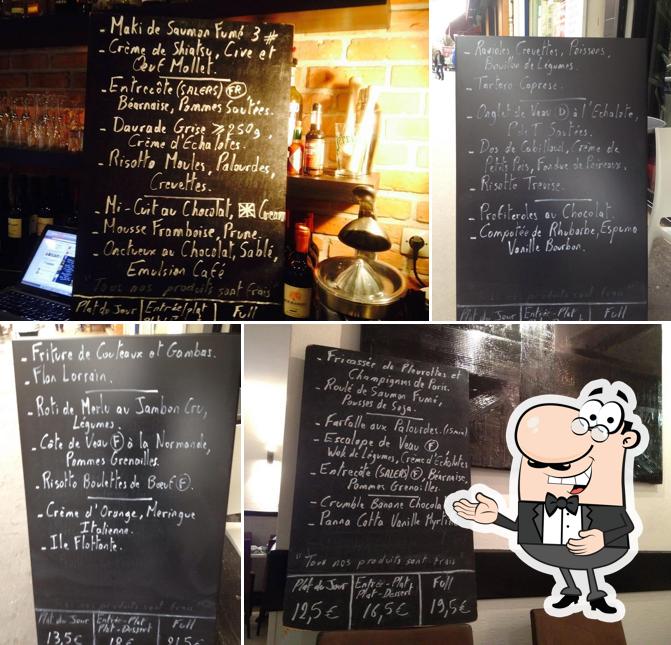 - Maki de Saumon Fumé 3 #
- Crème de Shiatsy, Cive et
Oeuf Mollet.
- Entrecôte (SALERS) (FR)
Béarnaise, Pommes Sautées.
- Daurade Grise ≥ 250g,
Crème d'Échalotes.
- Risotto Moules, Palourdes,
Crevettes.
- Mi-Cuit au Chocolat, Cream
- Mousse Framboise, Prune.
- Onctueux au Chocolat, Sablé,
Emulsion Café
"Tous nos produits sont frais
Plat du Jour Entrée/plat Full
- Ravioles Crevettes, Poissons,
Bouillon de Légumes.
- Tartare Caprese.
- Onglet de Veau (D) à l'Echalote,
P. de T. Sautées.
- Dos de Cabillaud, Crème de
Petits Pois, Fondue de Poireaux.
- Risotto Trévise.
- Profiteroles au Chocolat.
- Compotée de Rhubarbe, Espuma
Vanille Bourbon.
Plat du Jour Entrée-Plat Full
- Friture de Couteaux et Gambas.
- Flan Lorrain.
- Roti de Merlu au Jambon Cru,
Légumes.
- Côte de Veau (F) à la Normande,
Pommes Grenailles.
- Risotto Boulettes de Bœuf (F).
- Crème d'Orange, Meringue
Italienne.
- Ile Flottante.
produits sont frais
Plat du Jour Entrée-Plat Full
Plat-Dessert
13,5€ 18€ 21,5€
- Fricassée de Pleurottes et
Champignons de Paris.
- Roulé de Saumon Fumé,
Pousses de Soja.
- Farfalle aux Palourdes. (15min)
- Escalope de Veau (F),
Wok de Légumes, Crème d'Echalotes
- Entrecôte (SALERS) (F), Béarnaise,
Pommes Grenailles.
- Crumble Banane Chocola
- Panna Cotta Vanille Myrtil
"Tous nos produits sont frais"
Plat du Jour Entrée-Plat, Full
Plat-Dessert
12,5€ 16,5€ 19,5€